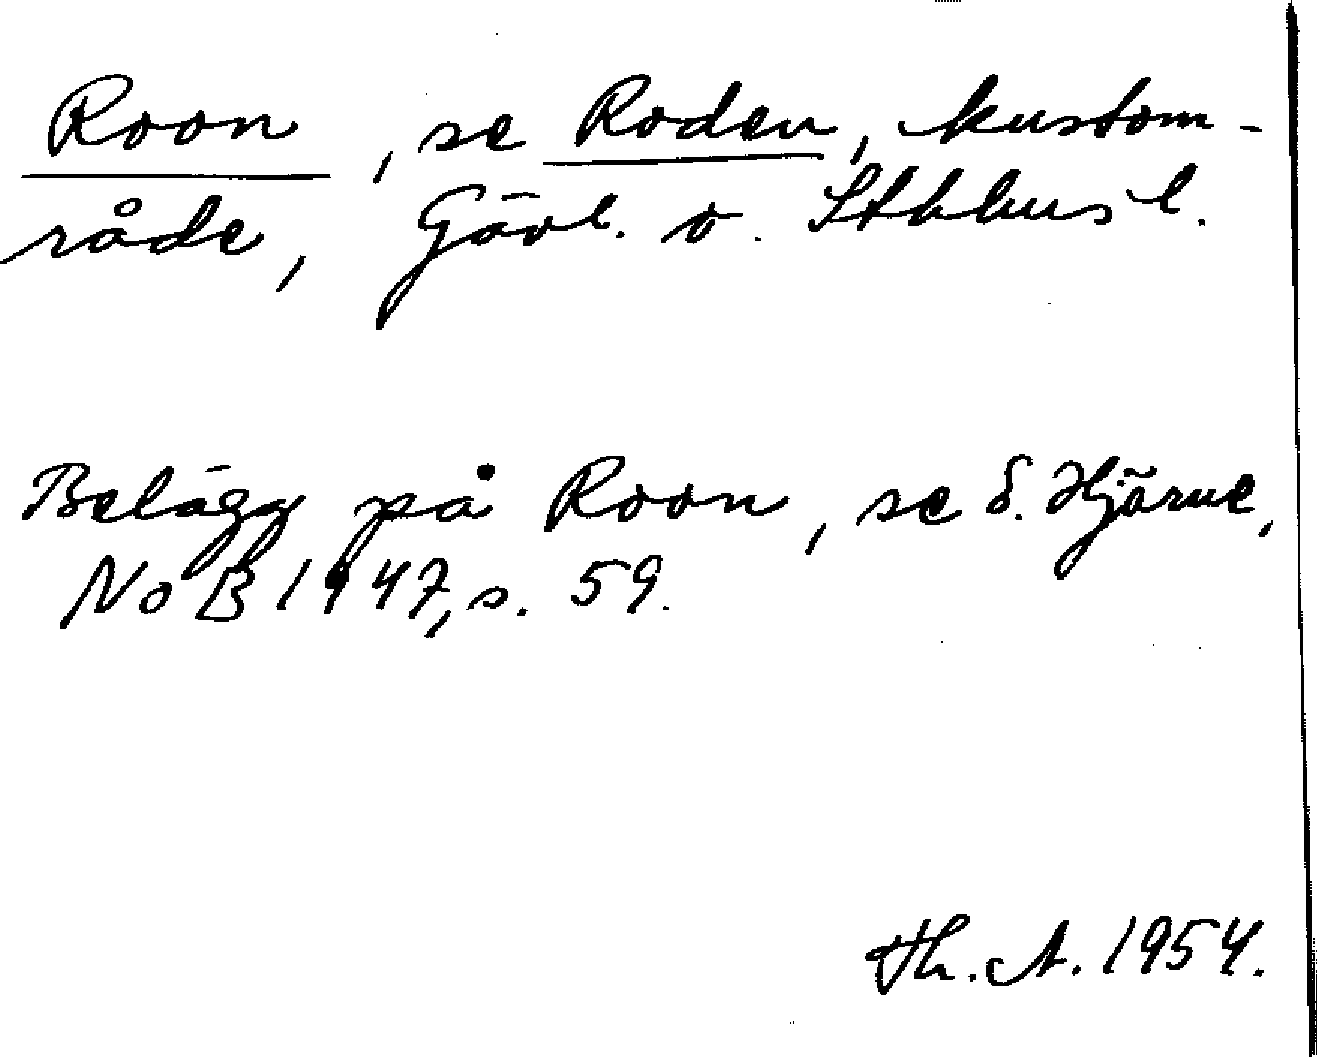 Roon, se Roden, kustom-
råde, Gävl. o. Sthlms l.
Belägg på Roon, se E. Hjärne,
NoB 1947, s. 59.
Th. A. 1954.